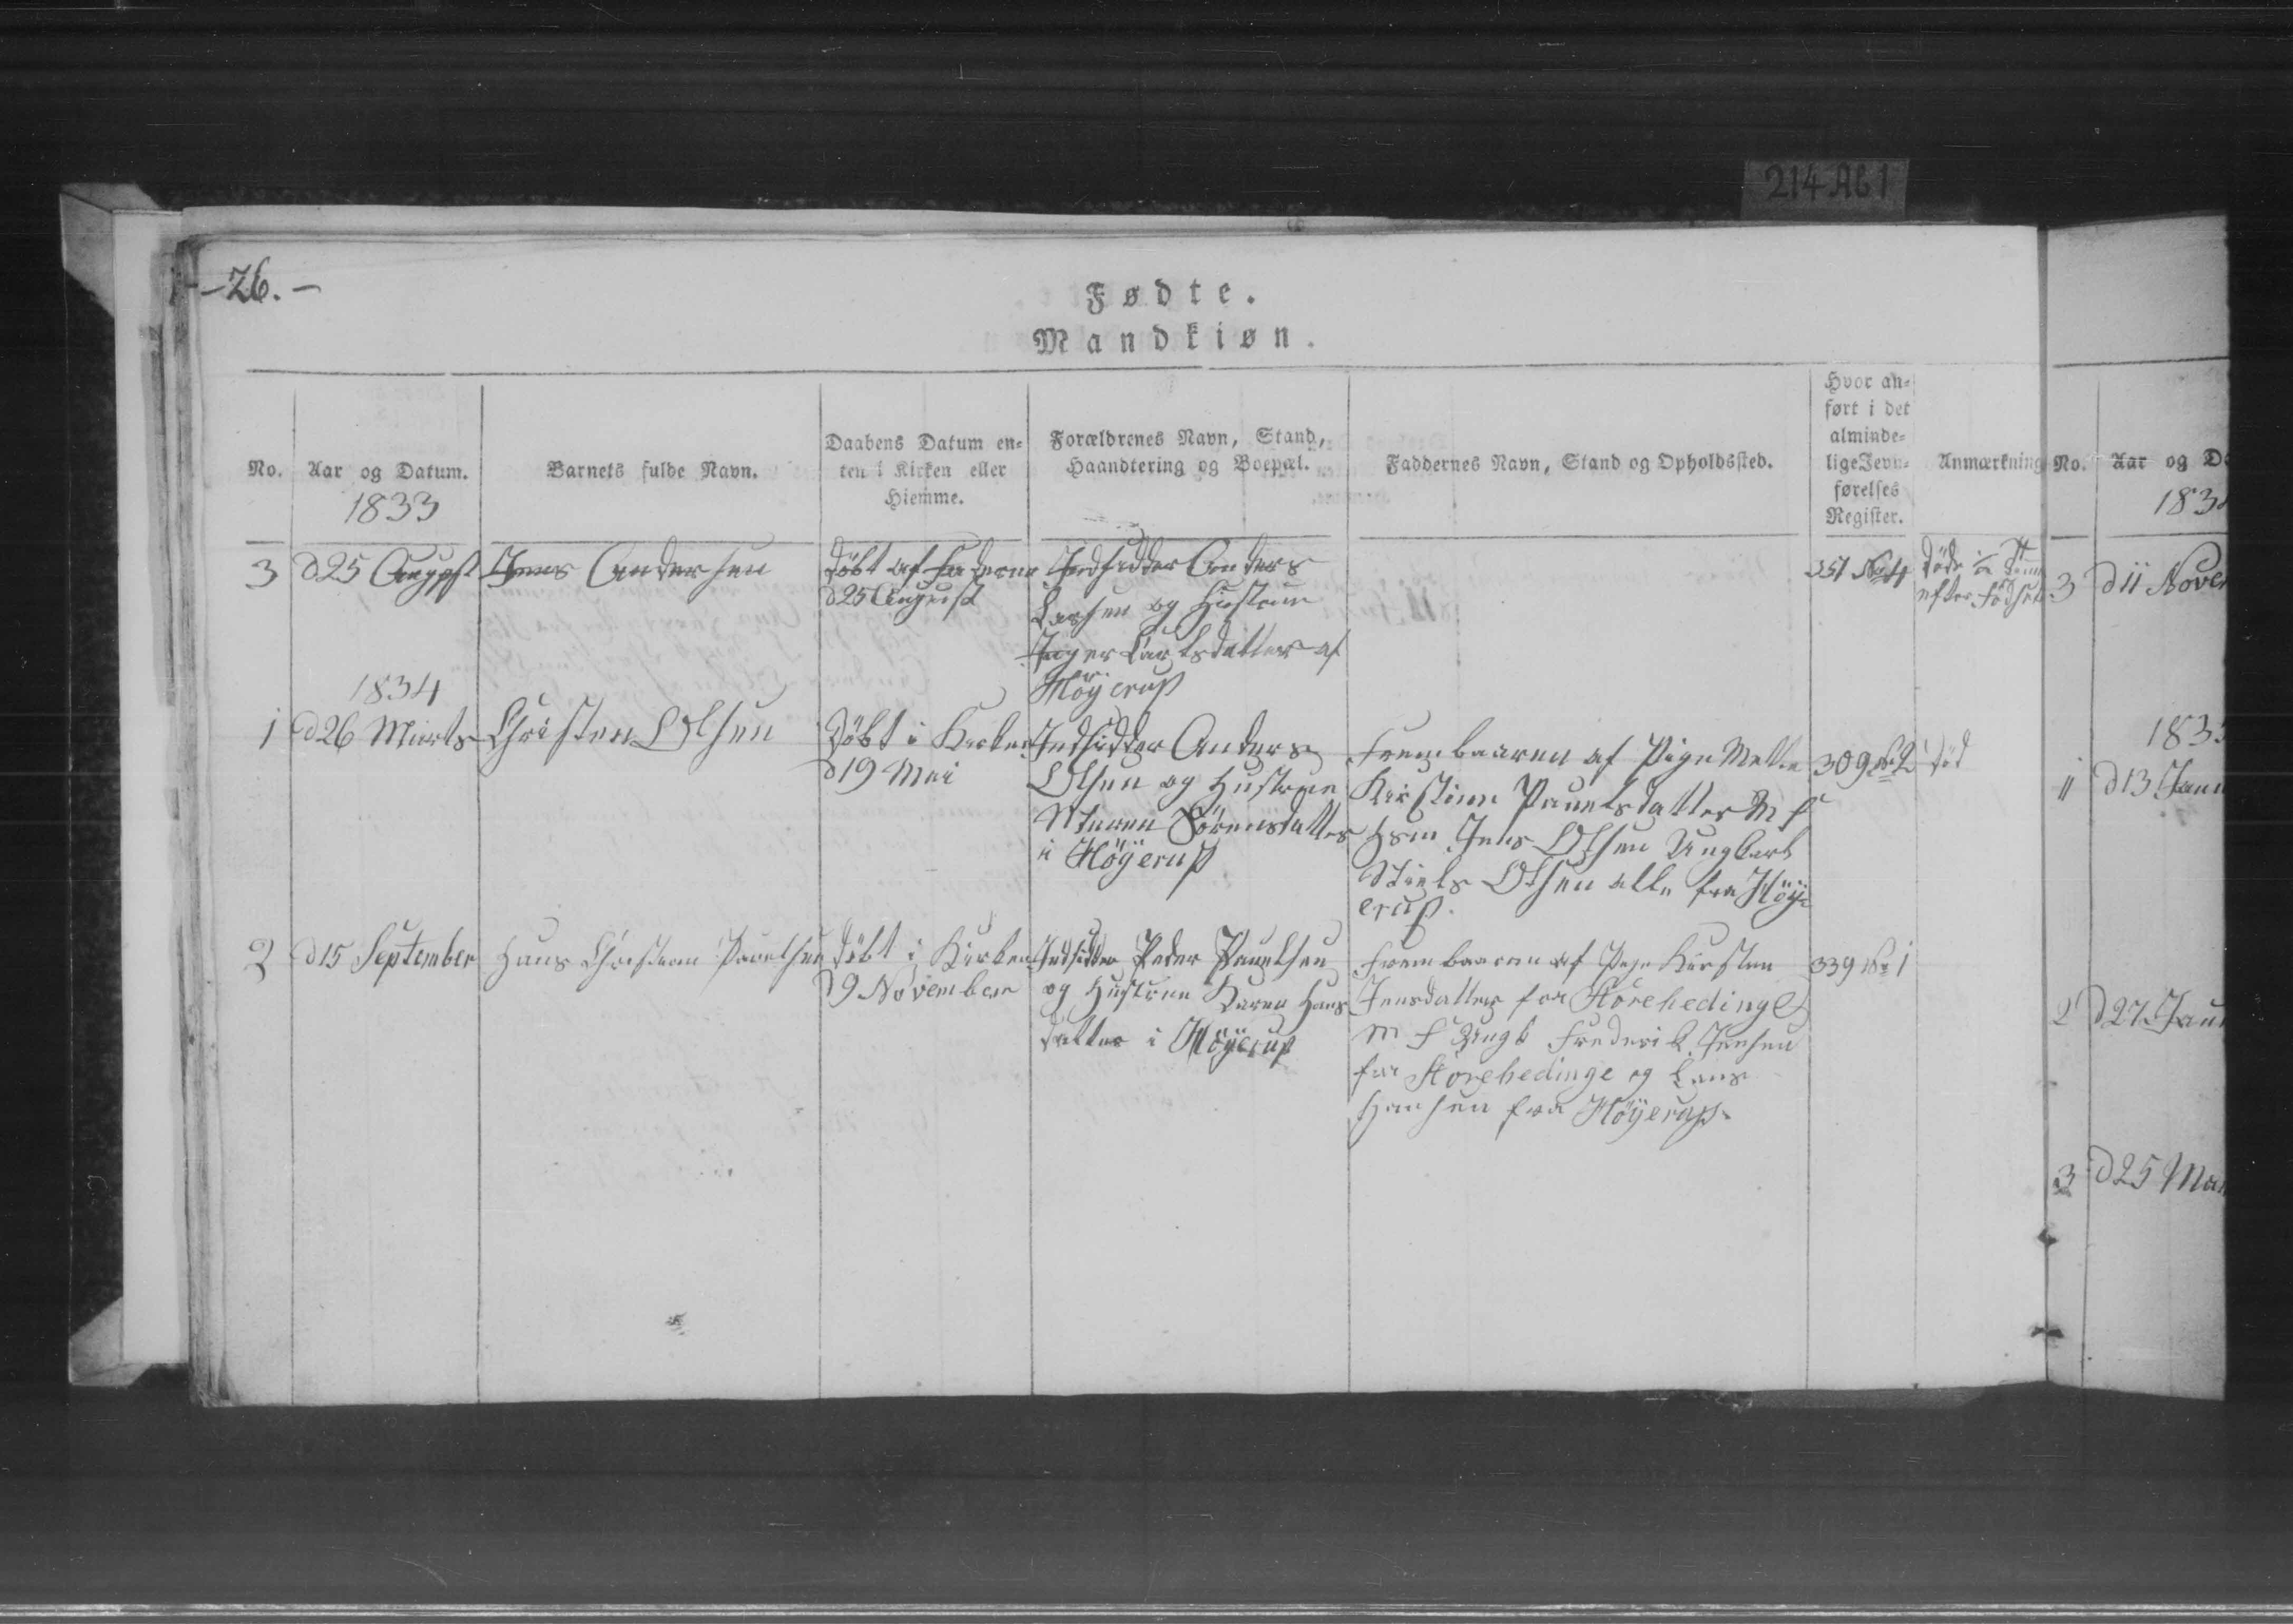 214 Ab 1
-26.-
Fødte.
Mandkiøn.
No.
Aar og Datum.
1833
Barnets fulde Navn.
Daabens Datum en-
ten i Kirken eller
Hiemme.
Forældrenes Navn, Stand,
Haandtering og Boepæl.
Faddernes Navn, Stand og Opholdssted.
Hvor an-
ført i det
alminde-
lige Jevn-
førelses
Register.
Anmærkning
3
d 25 August
Jens Andersen
Døbt af Faderen
d 25 August
Indsidder Anders
Larsen og Hustrue
Inger Larsdatter af
Höyerup
251 No 4
Døde
efter Fødsel
1834
1
d 26 Marts
Christen Olsen
Döbt i Kirken
d 19 Mai
Indsidder Anders
Olsen og Hustrue
Maren Sörensdatter
i Höÿerup
Frembaaren af Pige Mette
Kirstine Pauelsdatter M F
Hsm Jens Olsen Ungkarl
Niels Olsen alle fra Höÿ
erup.
309 No 2
Död
2
d 15 September
Hans Christian Pauelsen
Döbt i Kirken
d 9 November
Indsidder Peder Pauelsen
og Hustrue Karen Hans
datter i Höÿerup
Frembaaren af Pige Kirsten
Jensdatter fra Storehedinge
M F Ungk Frederik Jensen
fra Storehedinge og Lars
Hansen fra Höÿerup.
339 No 1
No.
Aar og Da
183
3
d 11 Nove
183
1
d 13 Janu
2
d 27 Janu
3
d 25 Mar